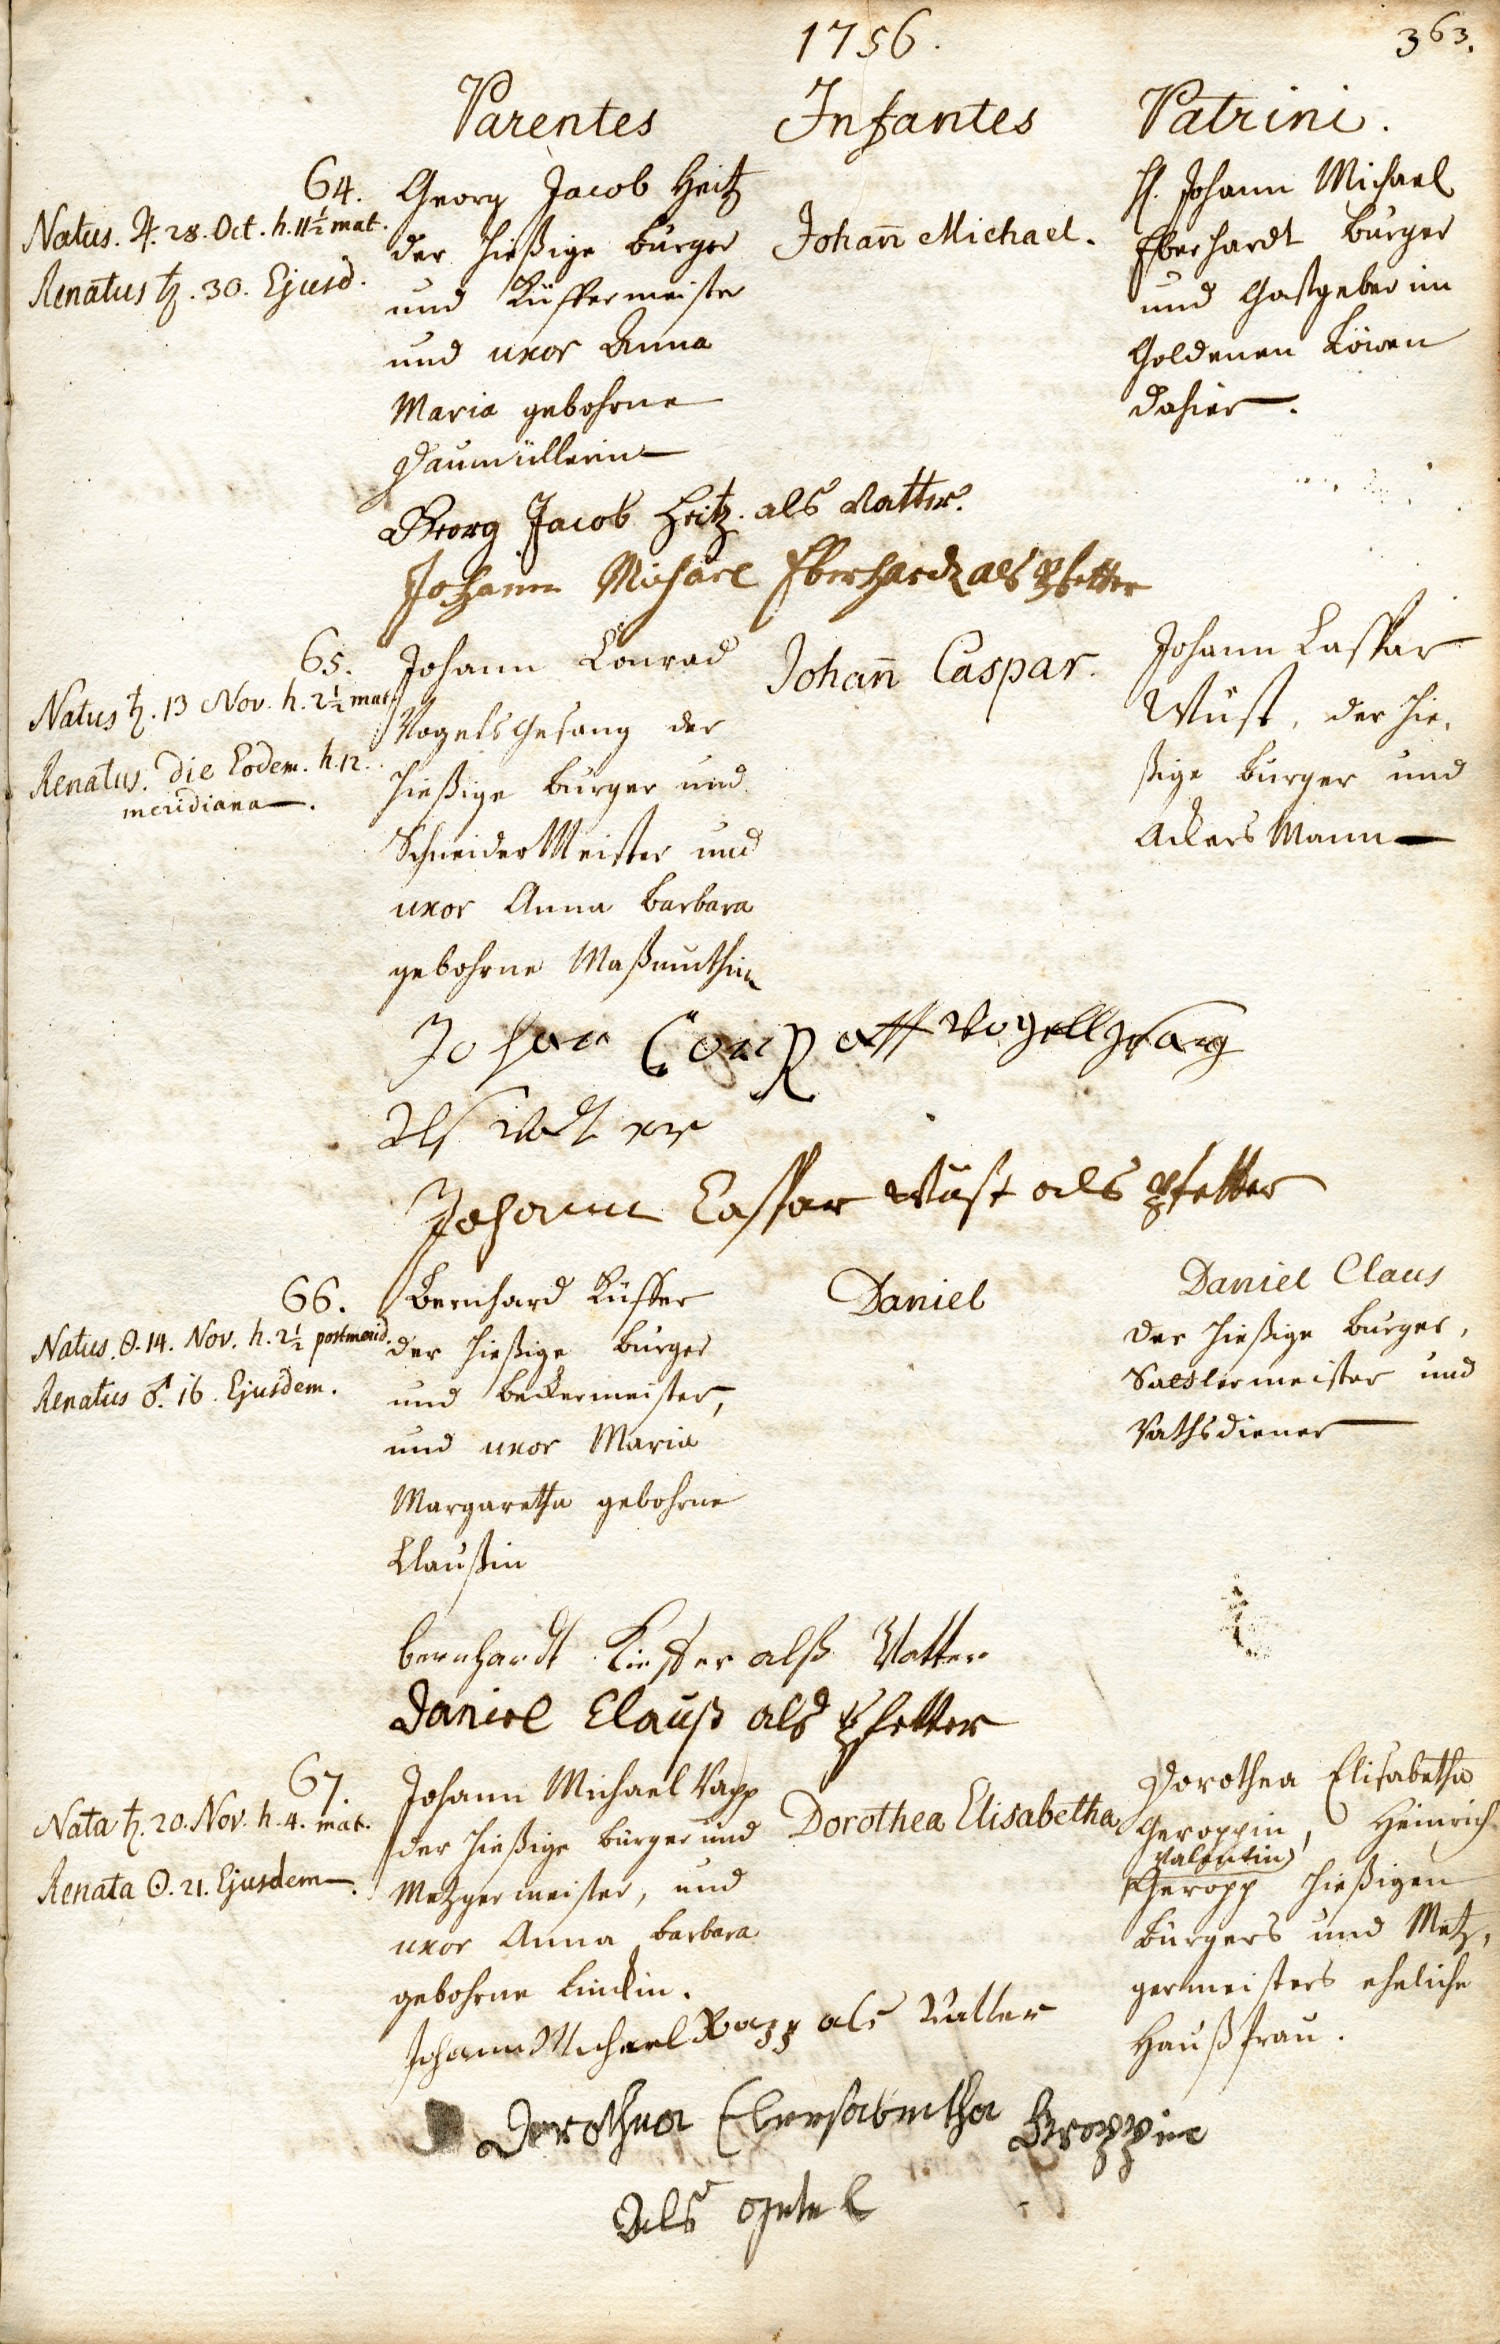 1756.
363.
Parentes Infantes Patrini.
64.
Natus. ♃. 28. Oct. h. 11½ mat.
Renatus ♄. 30. Ejusd.
Georg Jacob Heitz
der hießige burger
und Küffermeister
und uxor Anna
Maria gebohrne
Daumüllerin
Johan̄ Michael.
H. Johann Michael
Eberhardt burger
und Gastgeber im
Goldenen Löwen
dahier.
Georg Jacob Heitz als Vatter.
Johann Michael Eberhardt als Pfetter
65.
Natus ♄. 13 Nov. h. 2½ mat.
Renatus. die Eodem. h. 12.
meridiana.
Johann Conrad
Vogelsgesang der
hießige burger und
Schneider Meister und
uxor Anna barbara
gebohrne Maßmuthin
Johan̄ Caspar.
Johann Caspar
Wüst, der hie,
ßige burger und
Ackers Mann
Johan ConRatt Vogellgsang
Als Vatter
Johann Caspar Wüst als Pfetter
66.
Natus. ☉. 14. Nov. h. 2½ postmerid.
Renatus ♂. 16. Ejusdem.
Bernhard Küffer
der hießige burger
und beckermeister,
und uxor Maria
Margaretha gebohrne
Claußin
Daniel
Daniel Claus
der hießige burger,
Sattlermeister und
Rathsdiener
bernhardt Kieffer alß Vatter
Daniel Clauß als Pfetter
67.
Nata ♄. 20. Nov. h. 4. mat.
Renata ☉. 21. Ejusdem.
Johann Michael Rapp
der hießige bürger und
Metzgermeister, und
uxor Anna barbara
gebohrne Linckin.
Dorothea Elisabetha
Dorothea Elisabetha
Geroppin, Heinrich
Valentin
Geropp hießigen
bürgers und Metz,
germeisters eheliche
Haußfrau.
Johann Michael Rapp als Vatter
Dorothea Eleisabetha Geroppin
Als Getel